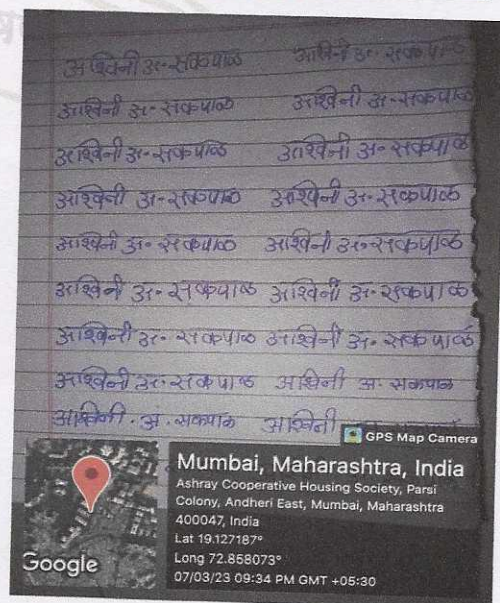 अश्विनी अ. सकपाळ अश्विनी अ. सकपाळ
अश्विनी अ. सकपाळ अश्विनी अ. सकपाळ
अश्विनी अ. सकपाळ अश्विनी अ. सकपाळ
अश्विनी अ. सकपाळ अश्विनी अ. सकपाळ
अश्विनी अ. सकपाळ अश्विनी अ. सकपाळ
अश्विनी अ. सकपाळ अश्विनी अ. सकपाळ
अश्विनी अ. सकपाळ अश्विनी अ. सकपाळ
अश्विनी अ. सकपाळ अश्विनी अ. सकपाळ
अश्विनी . अ . सकपाळ अश्विनी
GPS Map Camera
Mumbai, Maharashtra, India
Ashray Cooperative Housing Society, Parsi
Colony, Andheri East, Mumbai, Maharashtra
400047, India
Lat 19.127187°
Long 72.858073°
07/03/23 09:34 PM GMT +05:30
Google